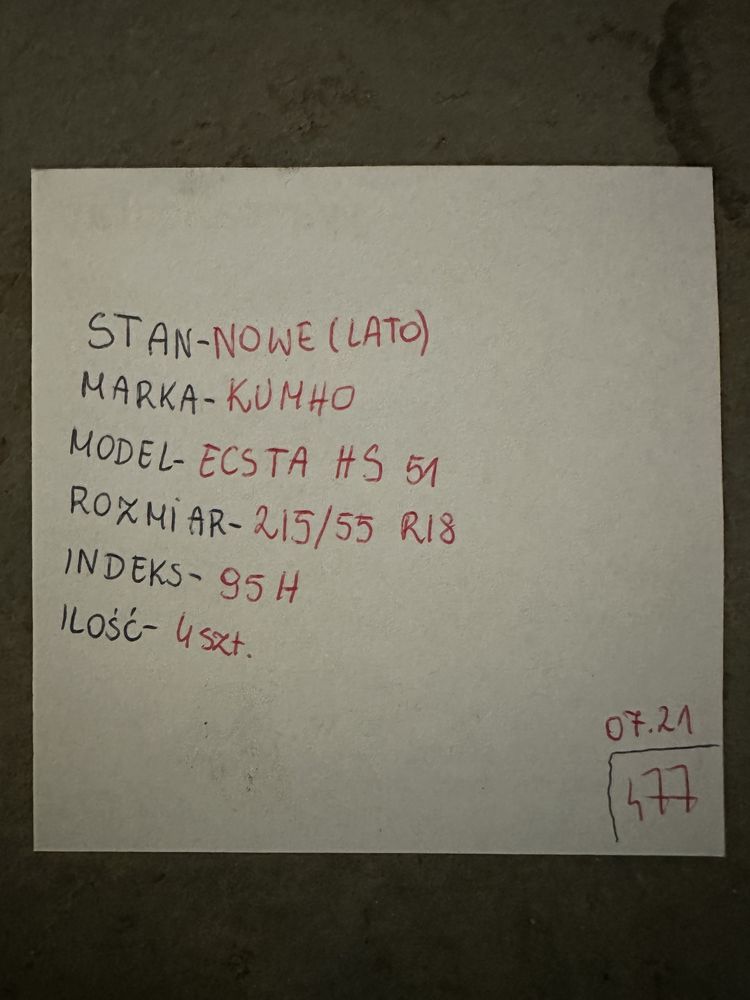 STAN-NOWE (LATO)
MARKA-KUMHO
MODEL-ECSTA HS 51
ROZMIAR-215/55 R18
INDEKS-95H
ILOŚĆ-4szt.
07.21
477